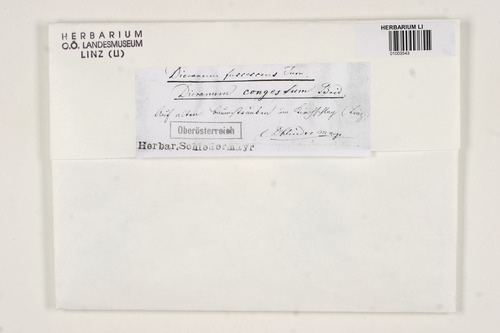 HERBARIUM
O.Ö. LANDESMUSEUM
LINZ (LI)
HERBARIUM LI
01003543
Dicranum fuscescens Turn.
Dicranum congestum Brid.
Auf alten Baumstrünken im
Oberösterreich
Herbar. Schiedermayr